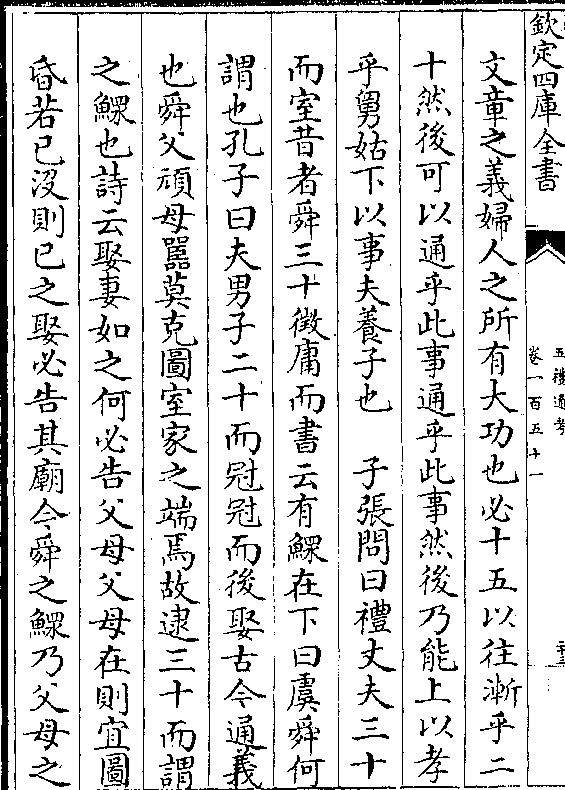 欽定四庫全書
五禮通考
卷一百五十一
文章之義婦人之所有大功也必十五以往漸乎二
十然後可以通乎此事通乎此事然後乃能上以孝
乎舅姑下以事夫養子也　子張問曰禮丈夫三十
而室昔者舜三十徵庸而書云有鰥在下曰虞舜何
謂也孔子曰夫男子二十而冠冠而後娶古今通義
也舜父頑母嚚莫克圖室家之端焉故逮三十而謂
之鰥也詩云娶妻如之何必告父母父母在則宜圖
昏若已沒則已之娶必告其廟今舜之鰥乃父母之